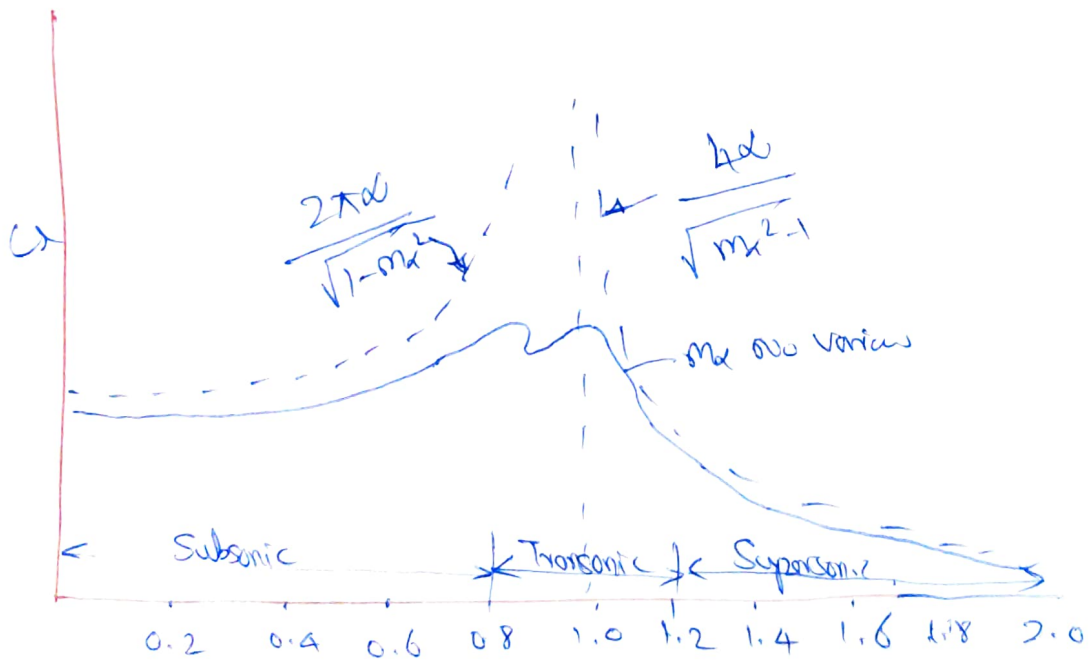 2πα
√1-mα²
4α
√mα²-1
CL
mα
Subsonic
Transonic
Supersonic
0.2 0.4 0.6 0.8 1.0 1.2 1.4 1.6 1.8 2.0